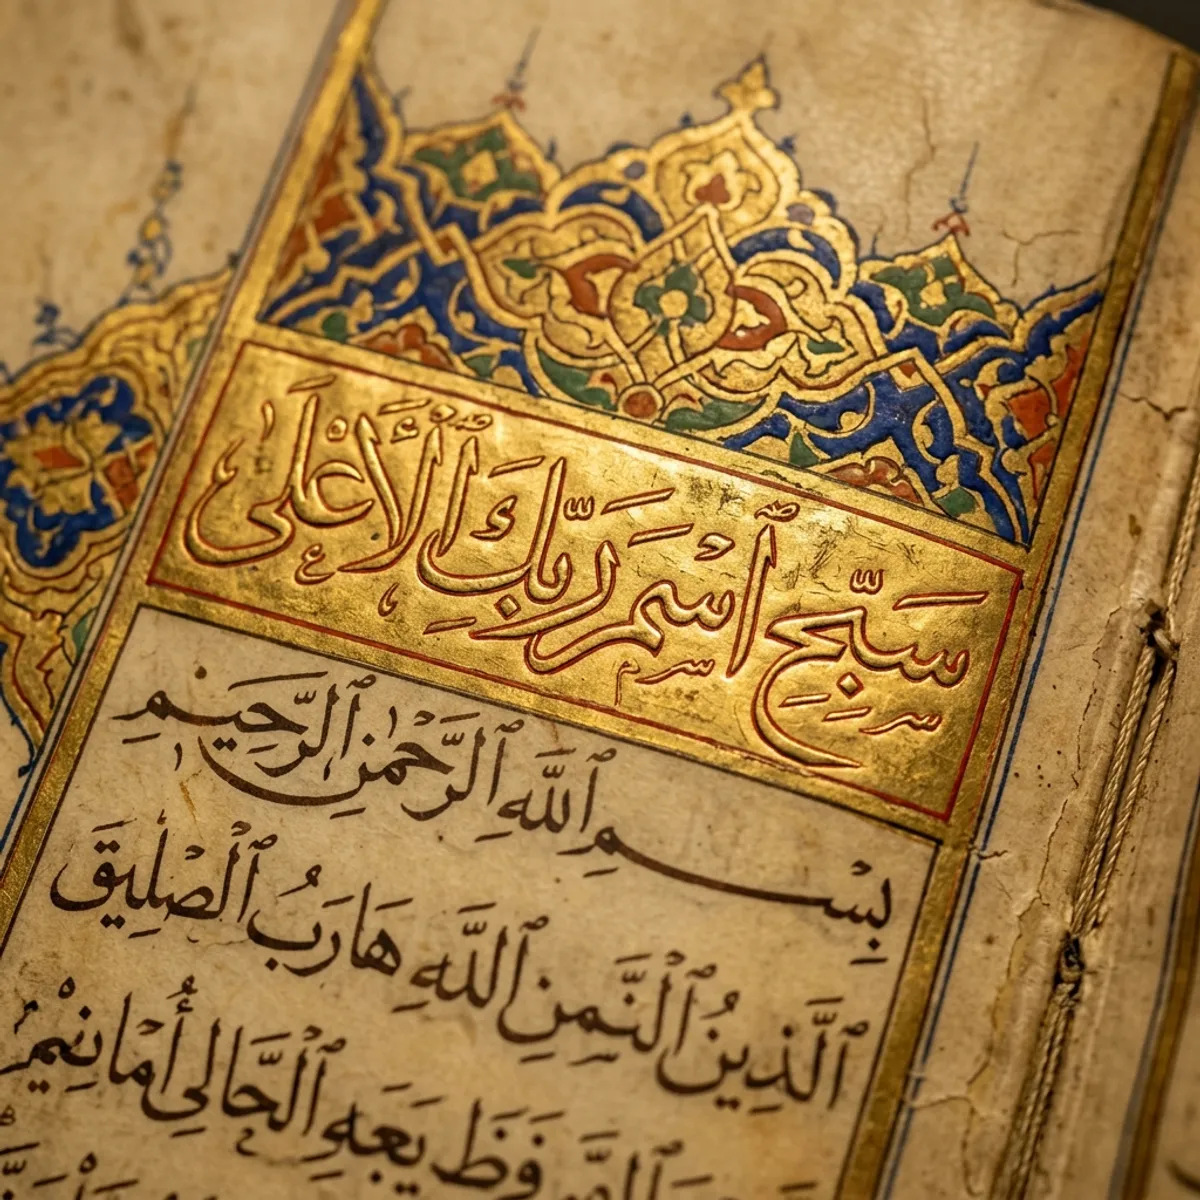 سَبِّحِ ٱسْمَ رَبِّكَ ٱلْأَعْلَى
بِسْمِ ٱللَّهِ ٱلرَّحْمَٰنِ ٱلرَّحِيمِ
ٱلَّذِينُ ٱلْنَّمِنِ ٱللَّهِ هَارَبُ ٱلْصْلِيقَ
فَظَ يَعَهِ ٱلْحَالِي أُمَانِيْمُ